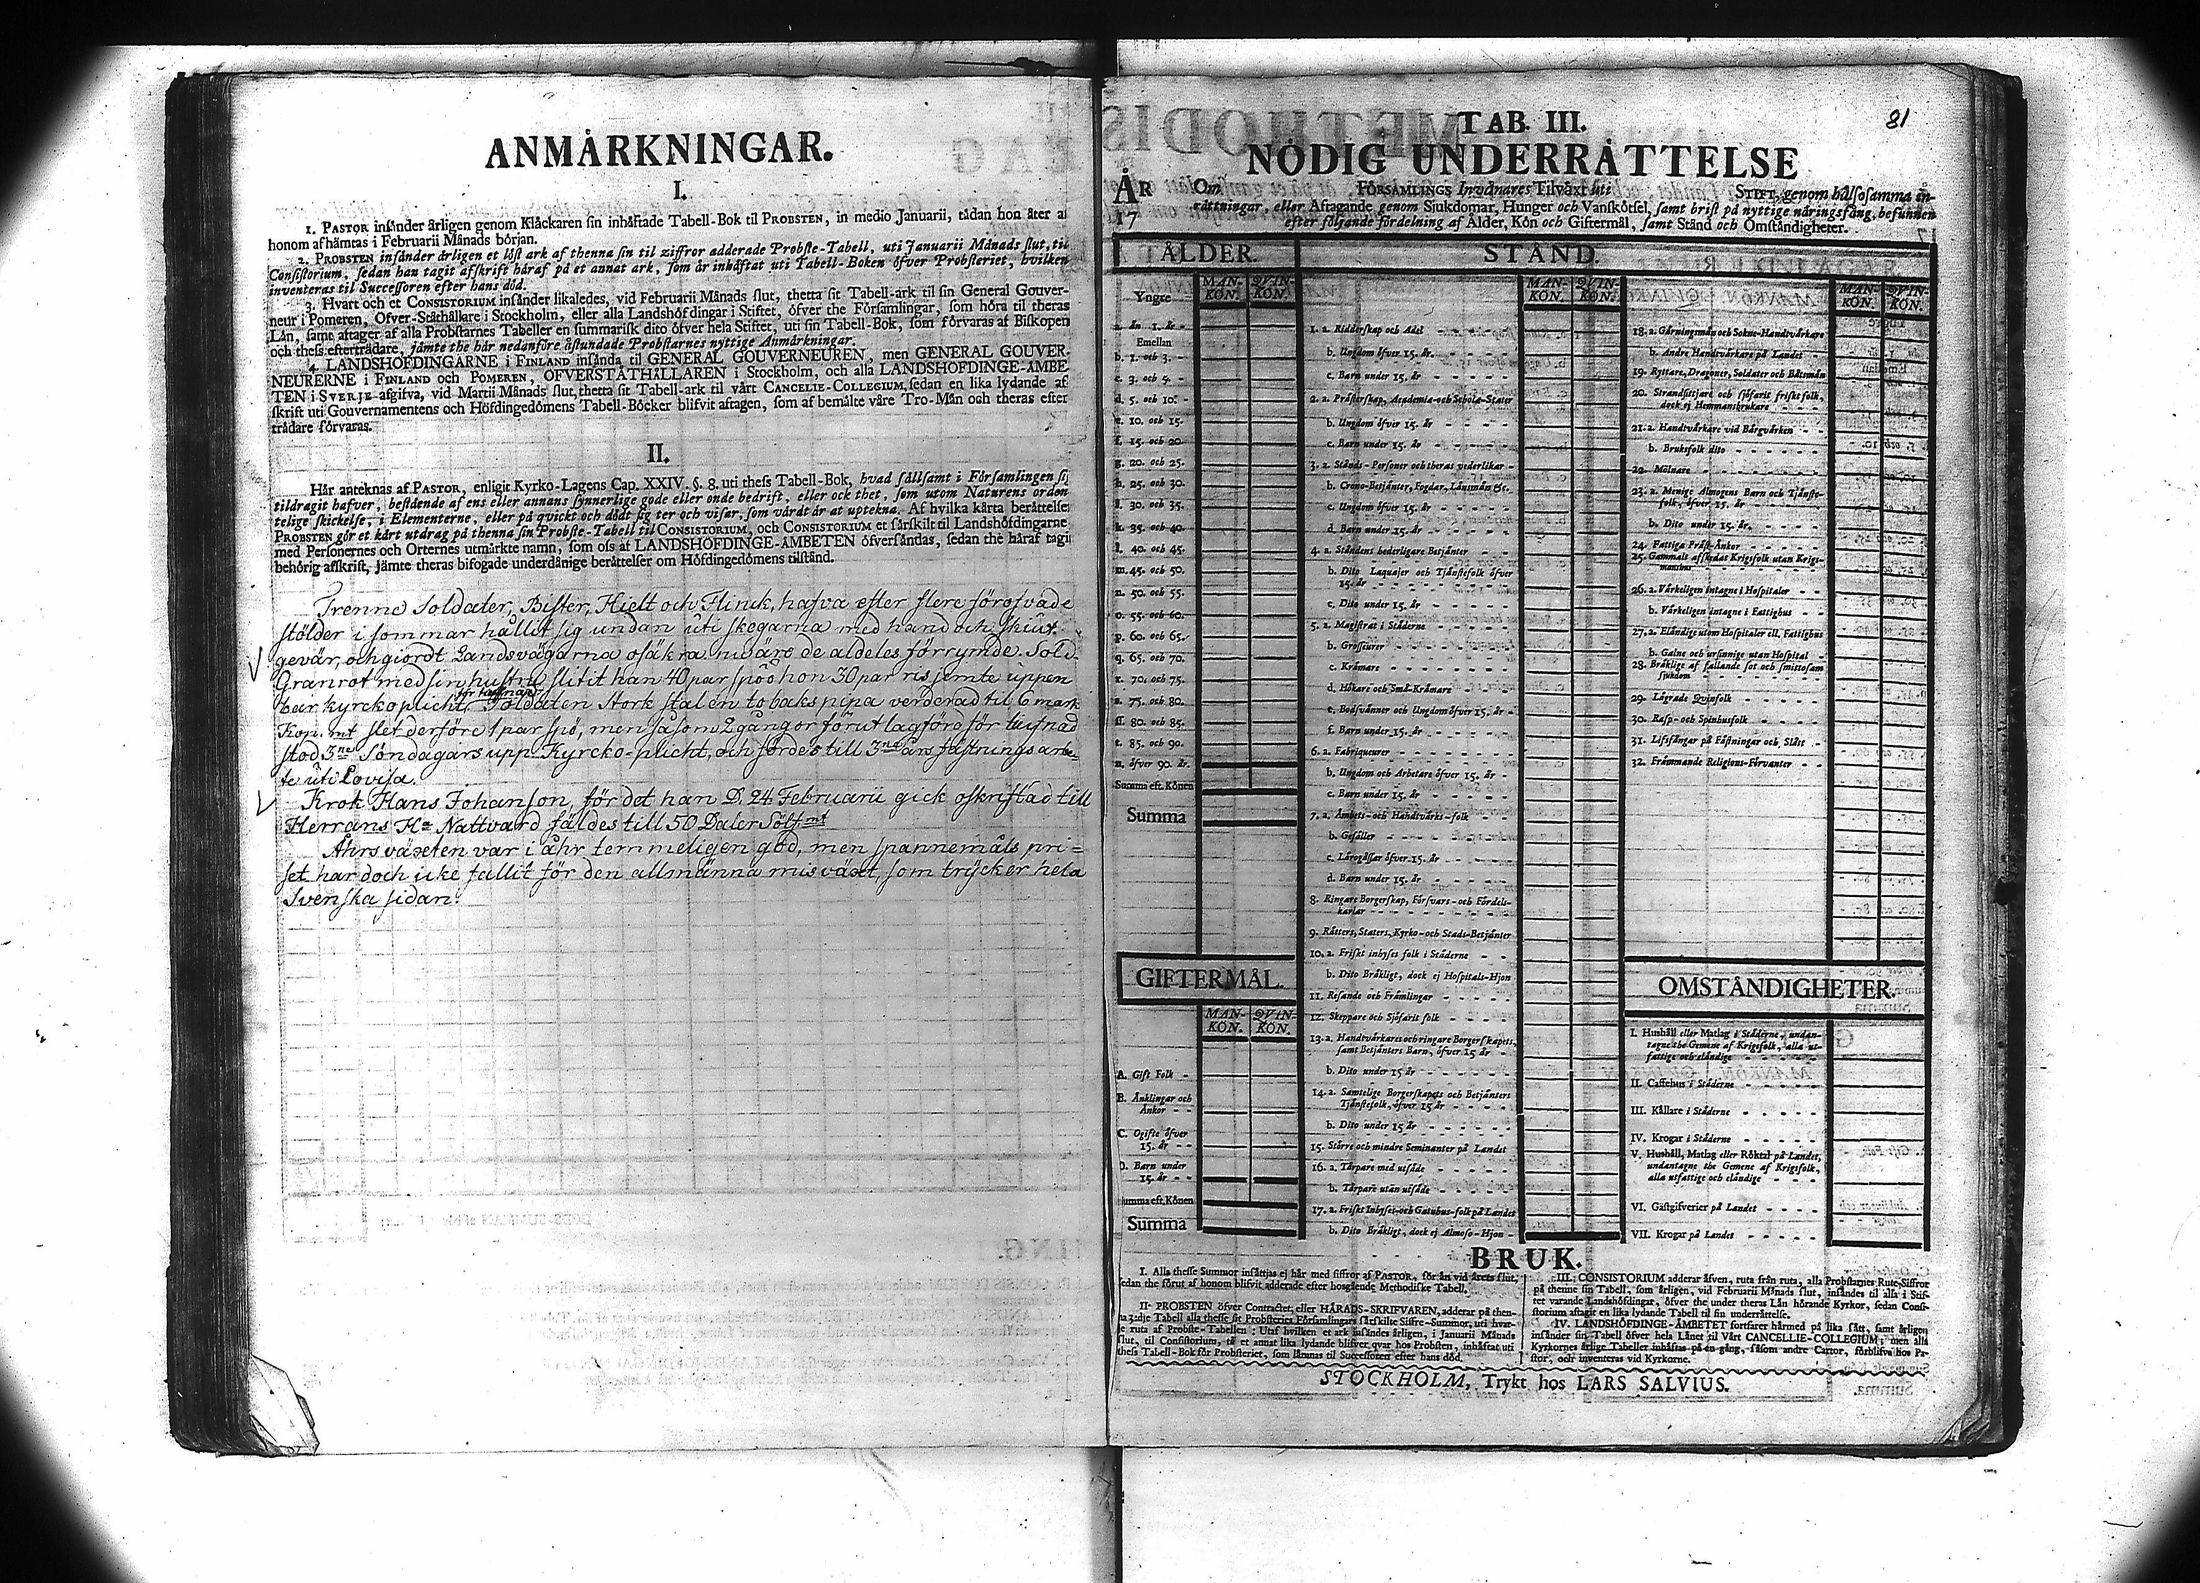 ANMÅRKNINGAR.
I.
1. PASTOR insånder årligen genom Klåckaren sin inhåftade Tabell-Bok til PROBSTEN, in medio Januarii, tådan hon åter af
honom afhåmtas i Februarii Månads början.
2. PROBSTEN insånder årligen et löst ark af thenna sin til ziffror adderade Probste-Tabell, uti Januarii Månads slut, til
Consistorium, sedan han tagit afskrift håraf på et annat ark, som år inhåftat uti Tabell-Boken öfver Probsteriet, hvilken
inventeras til Successoren efter hans död.
3. Hvart och et CONSISTORIUM insånder likaledes, vid Februarii Månads slut, thetta sit Tabell-ark til sin General Gouver-
neur i Pomeren, Öfver-Ståthållare i Stockholm, eller alla Landshöfdingar i Stiftet, öfver the Församlingar, som höra til theras
Lån, samt aftager af alla Probstarnes Tabeller en summarisk dito öfver hela Stiftet, uti sin Tabell-Bok, som förvaras af Biskopen
och thess eftertrådare, jåmte the hår nedanföre åstundade Probstarnes nyttige Anmårkningar.
4. LANDSHÖFDINGARNE i FINLAND insånda til GENERAL GOUVERNEUREN, men GENERAL GOUVER-
NEURERNE i FINLAND och POMEREN, ÖFVERSTÅTHÅLLAREN i Stockholm, och alla LANDSHÖFDINGE-ÅMBE-
TEN i SVERJE afgifva, vid Martii Månads slut, thetta sit Tabell-ark til vårt CANCELIE-COLLEGIUM, sedan en lika lydande af
skrift uti Gouvernamentens och Höfdingedömens Tabell-Böcker blifvit aftagen, som af bemålte våre Tro-Mån och theras efter
trådare förvaras.
II.
Hår anteknas af PASTOR, enligit Kyrko-Lagens Cap. XXIV. §. 8. uti thess Tabell-Bok, hvad sållsamt i Församlingen si
tildragit hafver, bestående af ens eller annans synnerlige gode eller onde bedrift, eller ock thet, som utom Naturens orden
telige skickelse, i Elementerne, eller på qvickt och dödt sig ter och visar, som vårdt år at uptekna. Af hvilka kårta beråttelser
PROBSTEN gör et kårt utdrag på thenna sin Probste-Tabell til CONSISTORIUM, och CONSISTORIUM et sårskilt til Landshöfdingarne
med Personernes och Orternes utmårkte namn, som oss af LANDSHÖFDINGE-ÅMBETEN öfversåndas, sedan the håraf tagi
behörig afskrift, jåmte theras bifogade underdånige beråttelser om Höfdingedömens tilstånd.
Trenne Soldater, Bister, Hielt och Flinck, hafva efter flere föröfvade
stölder i sommar hållit sig undan uti skogarna med hand och skiut
gevär, och giordt Landsvägarna osäkra. nu äro de aldeles förrymde. Sold.
Granrot med sin hustru slitit han 40 par spöö hon 30 par ris jemte uppen
bar kyrckoplicht för tiufnad Soldaten Stork stal en tobaks pipa värderad til 6 mark
Kop. mt slet derföre 1 par spö, men såsom 2 gångor förut lagförd för tiufnad
stod 3ne Söndagars upp. Kyrcko-plicht, och fördes till 3ne års fästnings arbe-
te uti Lovisa.
Krok Hans Johanson, för det han D. 24 Februarii gick oskriftad till
Herrans Ha Nattvard fäldes till 50 Daler Sölfmt
Åhrsväxten var i åhr temmeligen god, men spannemåls pri=
set har doch icke fallit för den allmänna misväxt, som trycker hela
Svenska sidan.
81
TAB. III.
NÖDIG UNDERRÅTTELSE
ÅR Om FÖRSAMLINGS Invånares Tilvåxt uti STIFT, genom hålsosamma in-
17 råttningar, eller Aftagande genom Sjukdomar, Hunger och Vanskötsel, samt brist på nyttige nåringsfång, befunnen
efter följande fördelning af Ålder, Kön och Giftermål, samt Stånd och Omståndigheter.
ÅLDER.
MAN-KÖN. QVIN-KÖN.
Yngre
a. ån 1. år -
Emellan
b. 1. och 3. -
c. 3. och 5. -
d. 5. och 10. -
e. 10. och 15.
f. 15. och 20.
g. 20. och 25.
h. 25. och 30.
i. 30. och 35.
k. 35. och 40.
l. 40. och 45.
m. 45. och 50.
n. 50. och 55.
o. 55. och 60.
p. 60. och 65.
q. 65. och 70.
r. 70. och 75.
s. 75. och 80.
ſſ. 80. och 85.
t. 85. och 90.
u. öfver 90. år.
Summa eft. Könen
Summa
GIFTERMÅL.
MAN-KÖN. QVIN-KÖN.
A. Gift Folk -
B. Ånklingar och
Ånkor - -
C. Ogifte öfver
15. år - -
D. Barn under
15. år - -
Summa eft. Könen
Summa
STÅND.
MAN-KÖN. QVIN-KÖN.
1. a. Ridderskap och Adel
b. Ungdom öfver 15. år.
c. Barn under 15. år
2. a. Pråsterskap, Academia- och Schola-Stater
b. Ungdom öfver 15. år
c. Barn under 15. år
3. a. Stånds-Personer och theras vederlikar -
b. Crono-Betjånter, Fogdar, Lånsmån &c.
c. Ungdom öfver 15. år
d. Barn under 15. år
4. a. Ståndens hederligare Betjånter
b. Dito Laquajer och Tjånstefolk öfver
15. år
c. Dito under 15. år
5. a. Magistrat i Ståderne
b. Grosseurer
c. Kråmare
d. Hökare och Små-Kråmare
e. Bodsvånner och Ungdom öfver 15. år -
f. Barn under 15. år
6. a. Fabriqueurer
b. Ungdom och Arbetare öfver 15. år -
c. Barn under 15. år
7. a. Åmbets- och Handtvårks-folk
b. Gesåller
c. Lårogåssar öfver 15. år
d. Barn under 15. år
8. Ringare Borgerskap, Försvars- och Fördels-
karlar
9. Råtters, Staters, Kyrko- och Stads-Betjånter
10. a. Friskt inhyses folk i Ståderne
b. Dito Bråkligt, dock ej Hospitals-Hjon
11. Resande och Fråmlingar
12. Skeppare och Sjöfarit folk
13. a. Handtvårkares och ringare Borgerskapets,
samt Betjånters Barn, öfver 15 år
b. Dito under 15 år
14. a. Samtelige Borgerskapets och Betjånters
Tjånstefolk, öfver 15 år
b. Dito under 15 år
15. Större och mindre Seminanter på Landet
16. a. Tårpare med utsåde
b. Tårpare utan utsåde
17. a. Friskt Inhyses- och Gatuhus-folk på Landet
b. Dito Bråkligt, dock ej Almoso-Hjon -
MAN-KÖN. QVIN-KÖN.
18. a. Gårningsmån och Sokne-Handtvårkare
b. Andre Handtvårkare på Landet
19. Ryttare, Dragoner, Soldater och Båtsmån
20. Strandsittjare och sjöfarit friskt folk,
dock ej Hemmansbrukare
21. a. Handtvårkare vid Bårgvårken
b. Bruksfolk dito
22. Mölnare
23. a. Menige Almogens Barn och Tjånste-
folk, öfver 15. år
b. Dito under 15. år.
24. Fattiga Pråst-Ånkor
25. Gammalt afskedat Krigsfolk utan Krigs-
manshus
26. a. Vårkeligen intagne i Hospitaler
b. Vårkeligen intagne i Fattighus
27. a. Elåndige utom Hospitaler ell. Fattighus
b. Galne och ursinnige utan Hospital
28. Bråklige af fallande sot och smittosam
sjukdom
29. Lågrade Qvinfolk
30. Rasp- och Spinhusfolk
31. Lifsfångar på Fåstningar och Slått
32. Fråmmande Religions-Förvanter
OMSTÅNDIGHETER.
I. Hushåll eller Matlag i Ståderne, undan-
tagne the Gemene af Krigsfolk, alla ut-
fattige och elåndige
II. Caffehus i Ståderne
III. Kållare i Ståderne
IV. Krogar i Ståderne
V. Hushåll, Matlag eller Röktal på Landet,
undantagne the Gemene af Krigsfolk,
alla utfattige och elåndige
VI. Gåstgifverier på Landet
VII. Krogar på Landet
BRUK.
I. Alla thesse Summor insåttjas ej hår med siffror af PASTOR, för ån vid årets slut,
sedan the förut af honom blifvit adderade efter hosgående Methodiske Tabell.
II. PROBSTEN öfver Contractet, eller HÅRADS-SKRIFVAREN, adderar på then-
na 3:dje Tabell alla thesse sit Probsteries Församlingars sårskilte Siffre-Summor, uti hvar-
je ruta af Probste-Tabellen: Utaf hvilken et ark insåndes årligen, i Januarii Månads
slut, til Consistorium, tå et annat lika lydande blifver qvar hos Probsten, inhåftat uti
thess Tabell-Bok för Probsteriet, som låmnas til Successoren efter hans död.
III. CONSISTORIUM adderar åfven, ruta från ruta, alla Probstarnes Rute-Siffror
på thenne sin Tabell, som årligen, vid Februarii Månads slut, insåndes til alla i Stif-
tet varande Landshöfdingar, öfver the under theras Lån hörande Kyrkor, sedan Consi-
storium aftagit en lika lydande Tabell til sin underråttelse.
IV. LANDSHÖFDINGE-ÅMBETET fortfarer hårmed på lika sått, samt årligen
insånder sin Tabell öfver hela Lånet til Vårt CANCELLIE-COLLEGIUM; men alla
Kyrkornes årlige Tabeller inhåftas på en gång, såsom andre Cartor, förblifva hos Pa-
stor, och inventeras vid Kyrkorne.
STOCKHOLM, Trykt hos LARS SALVIUS.